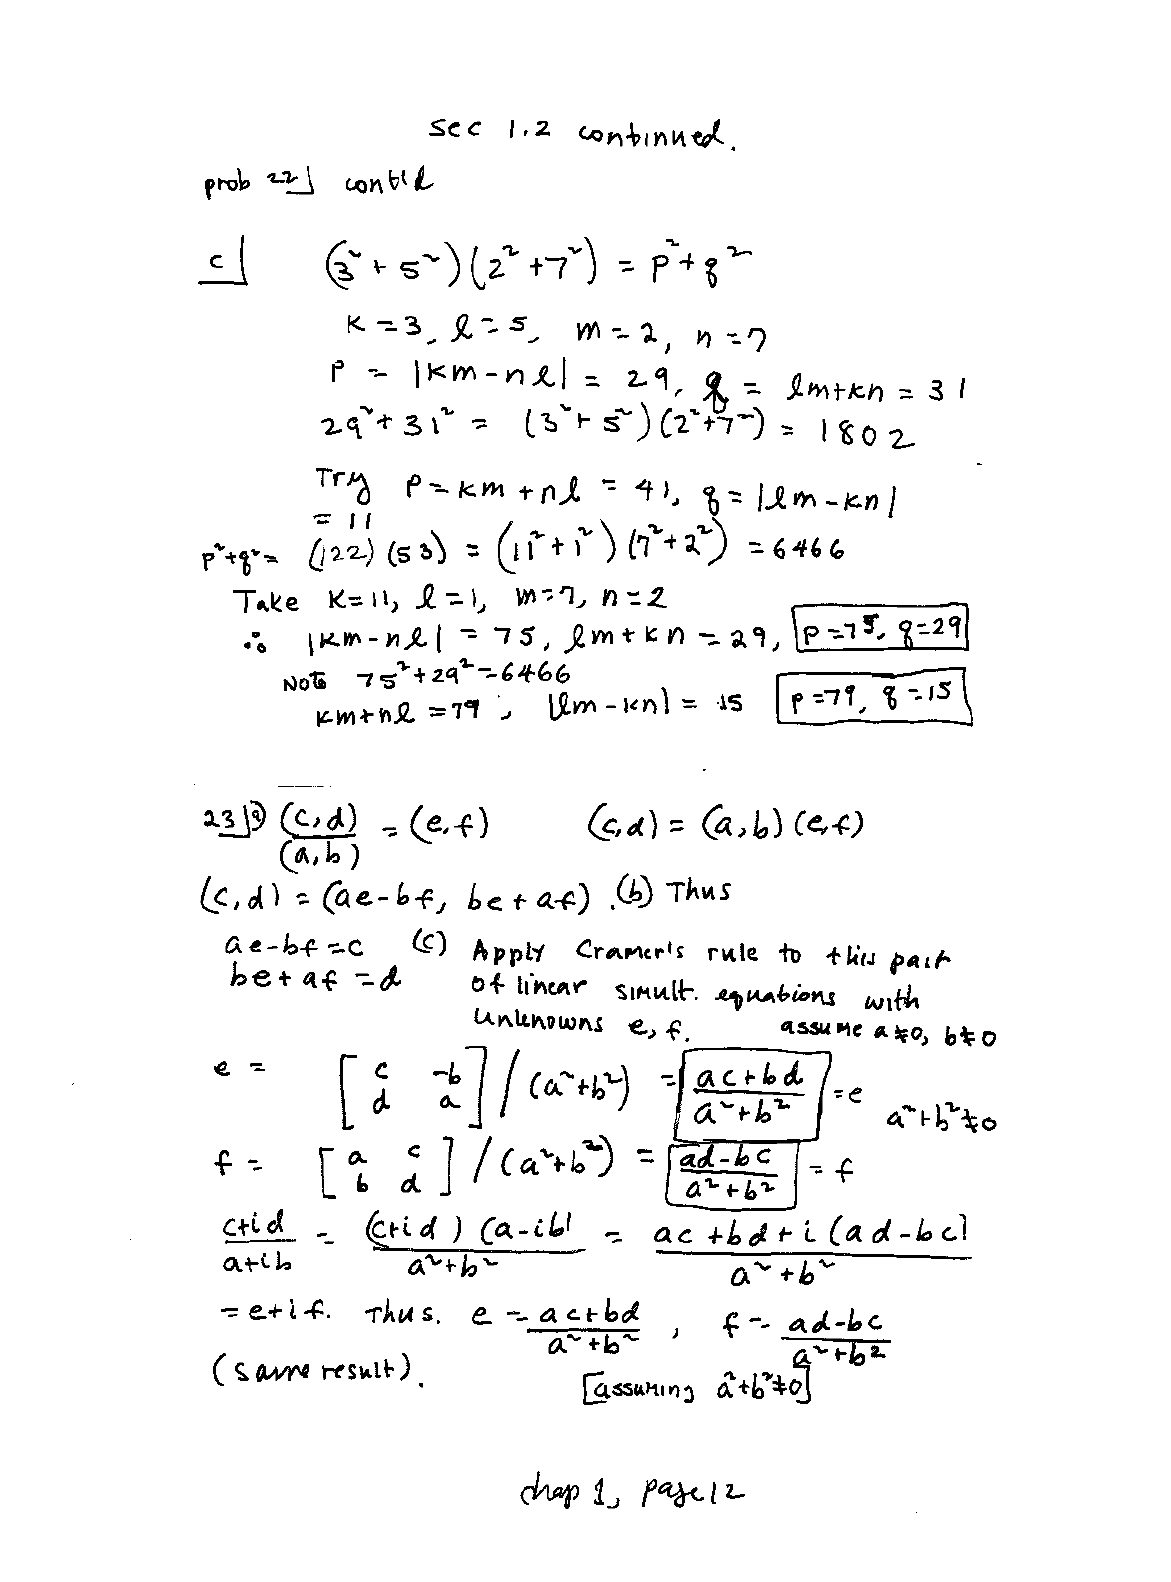 sec 1.2 continued.
prob 22] cont'd
c] (3² + 5²)(2² + 7²) = p² + q²
K = 3, l = 5, m = 2, n = 7
p = |km - nl| = 29, q = lm + kn = 31
29² + 31² = (3² + 5²)(2² + 7²) = 1802
Try p = km + nl = 41, q = |lm - kn|
= 11
p² + q² = (122)(53) = (11² + 1²)(7² + 2²) = 6466
Take K = 11, l = 1, m = 7, n = 2
∴ |km - nl| = 75, lm + kn = 29, p = 75, q = 29
Note 75² + 29² = 6466
km + nl = 79, |lm - kn| = 15 p = 79, q = 15
23] (a) (c,d)/(a,b) = (e,f) (c,d) = (a,b)(e,f)
(c,d) = (ae - bf, be + af). (b) Thus
ae - bf = c (c) Apply Cramer's rule to this pair
be + af = d of linear simult. equations with
unknowns e, f. assume a ≠ 0, b ≠ 0
e = [c -b; d a] / (a² + b²) = (ac + bd)/(a² + b²) = e a² + b² ≠ 0
f = [a c; b d] / (a² + b²) = (ad - bc)/(a² + b²) = f
(c + id)/(a + ib) = (c + id)(a - ib)/(a² + b²) = (ac + bd + i(ad - bc))/(a² + b²)
= e + if. Thus. e = (ac + bd)/(a² + b²), f = (ad - bc)/(a² + b²)
(same result). [assuming a² + b² ≠ 0]
chap 1, page 12